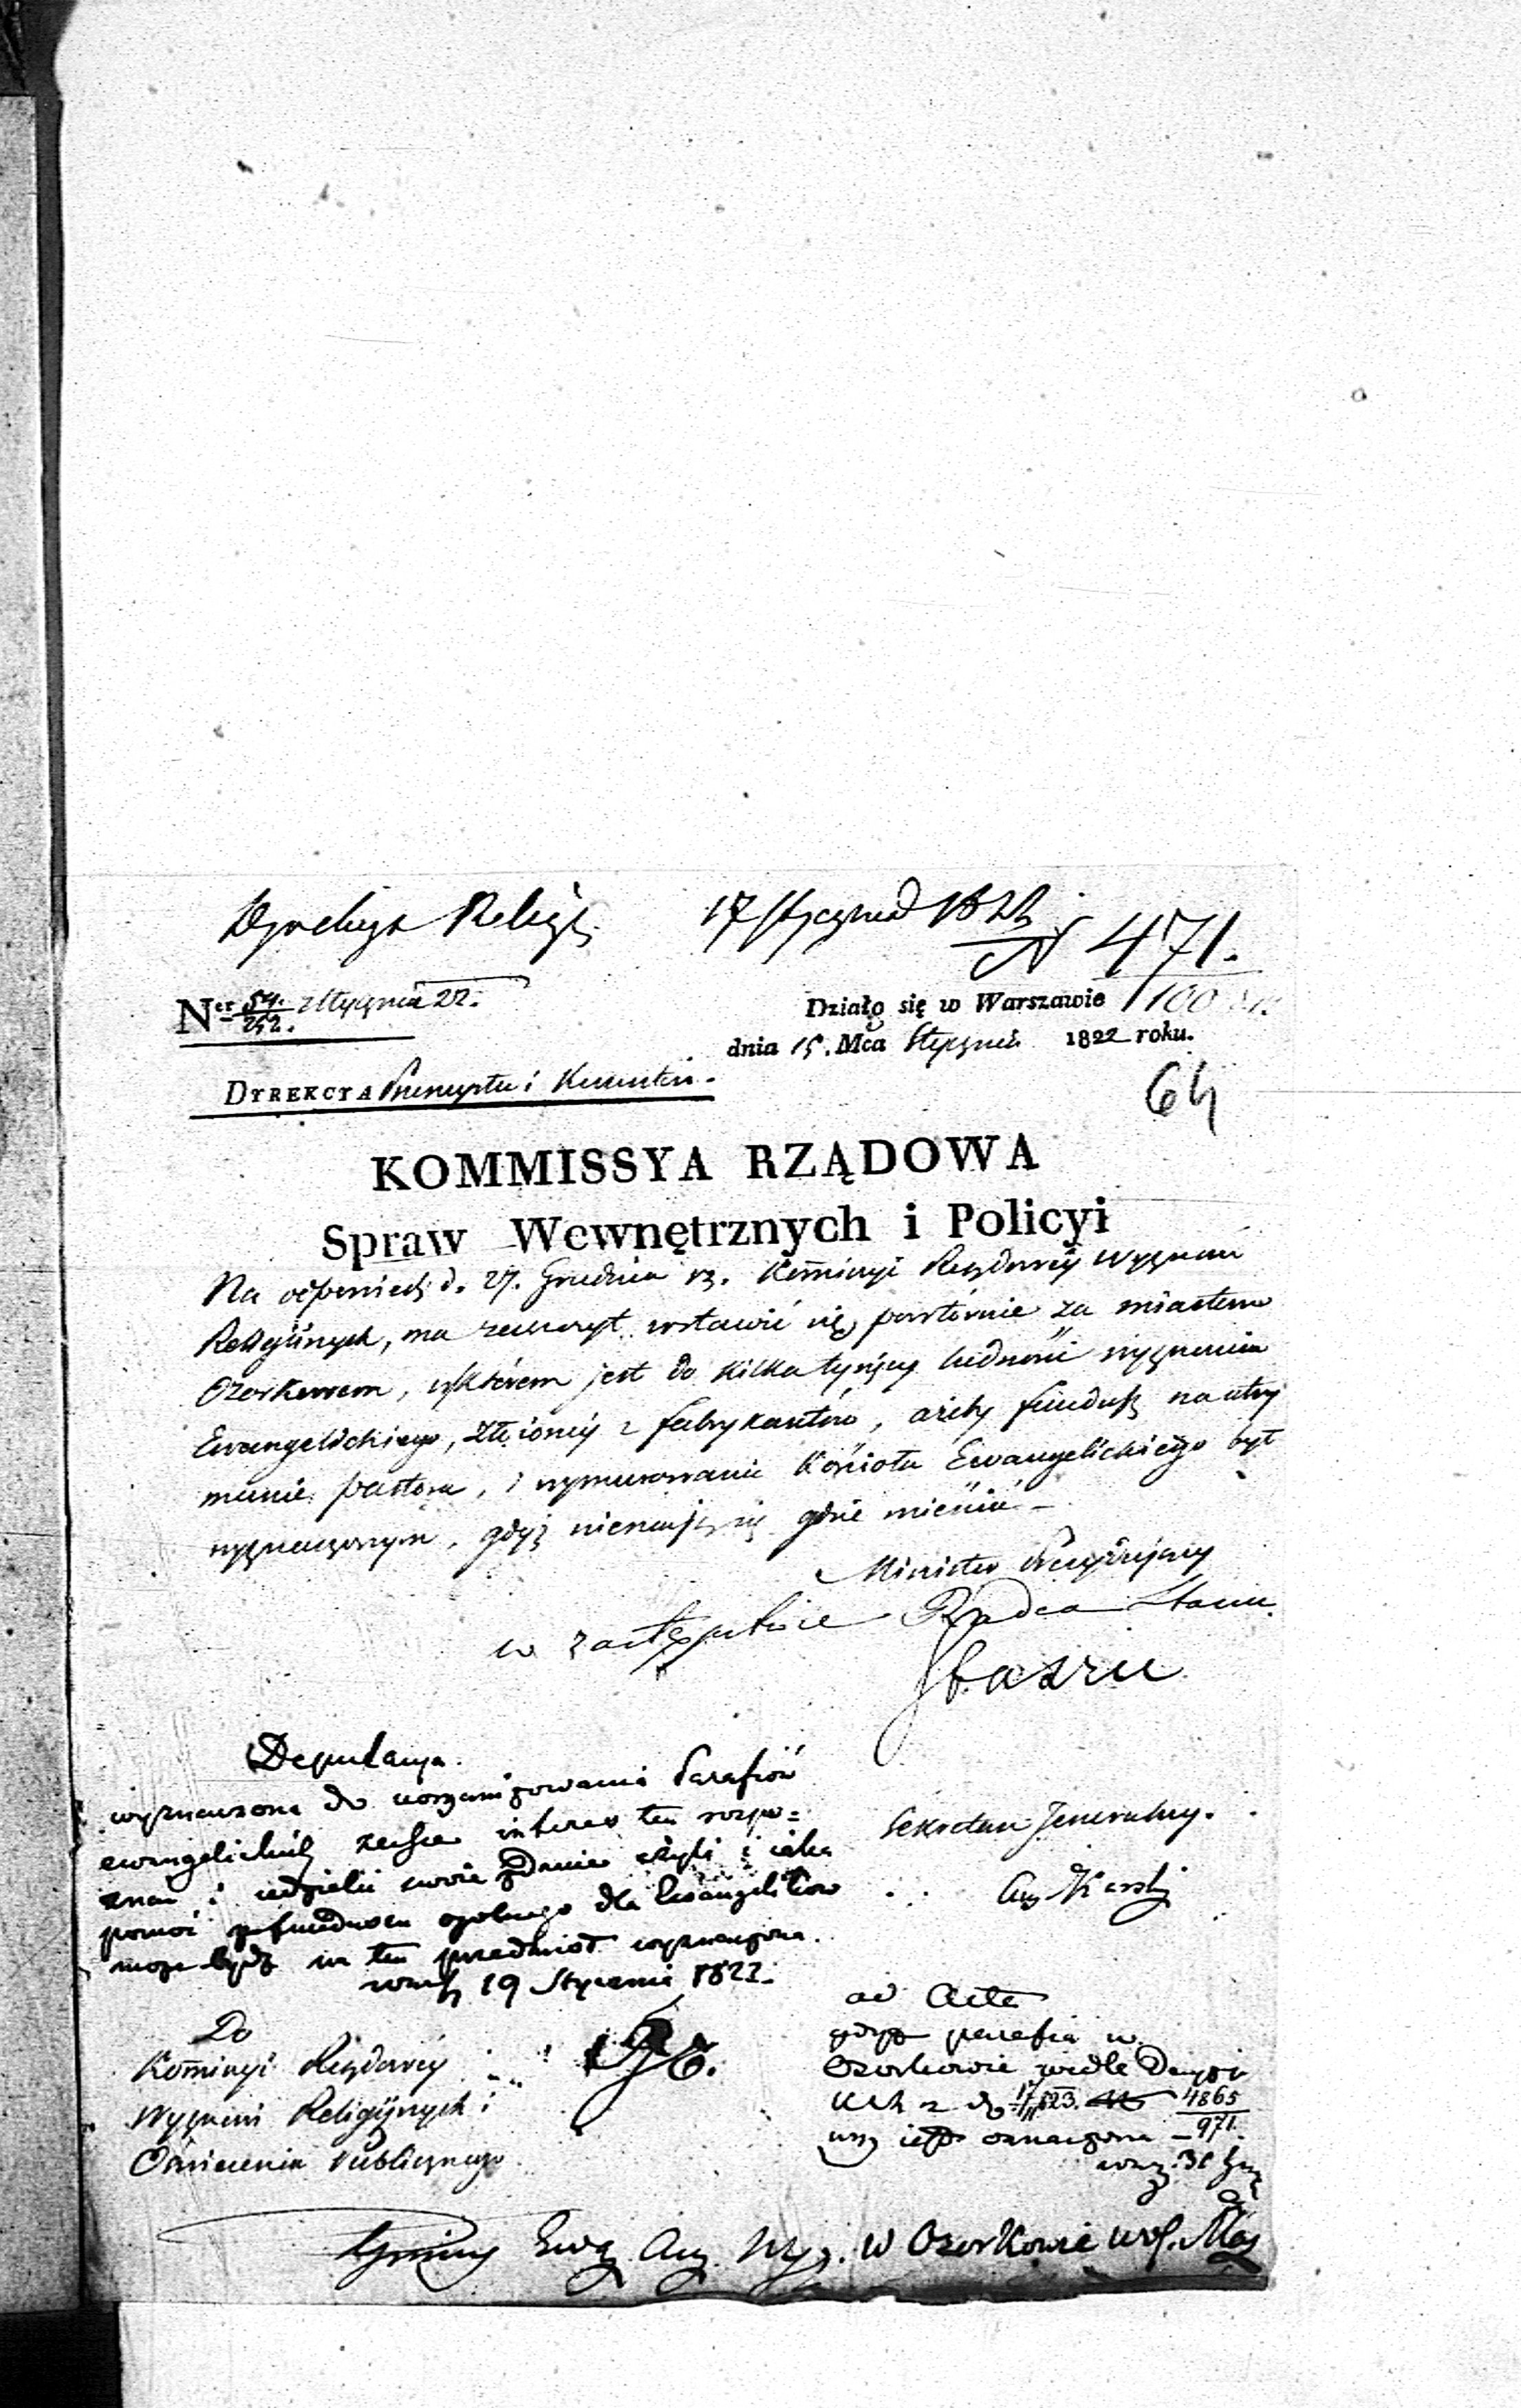 Dyrekcya Religij. 17 Stycznia 1822
N 471.
100
Ner 54./252. z Stycznia 22.
Działo się w Warszawie
dnia 15. Mca Stycznia 1822 roku.
64
DYREKCYA Przemysłu i Kunsztów.
KOMMISSYA RZĄDOWA
Spraw Wewnętrznych i Policyi
Na odpowiedź d. 27. Grudnia rz. Kommissyi Rządowéy Wyznań
Religijnych, ma zaszczyt wstawić się powtórnie za miastem
Ozorkowem, w którem jest do kilka tysięcy ludności wyznania
Ewangelickiego, złożonéy z fabrykantów, ażeby fundusz na utrzy
manie pastora, i wymurowanie Kościoła Ewangelickiego był
wyznaczonym, gdyż niemają się gdzie mieścić –
Minister Prezydujący
w zastępstwie Radca Stanu
Sekretarz Jeneralny.
Deputacya
wyznaczona do uorganizowania Parafiów
ewangelickich zechce interes ten rozpo=
znać i udzielić swoie zdanie czyli i iaka
pomoc z funduszu ogólnego dla Ewangelików
może bydź na ten przedmiot wyznaczona.
19 Stycznia 1822.
Do
Kommissyi Rządowéy
Wyznań Religijnych i
Oświecenia Publicznego
ad Acta
gdyż parafia w
Ozorkowie wedle Decyzyi
z d. 4865/971.
iest oznaczona
Gminy Ewg Aug. Wyz. w Ozorkowie woj. Maz